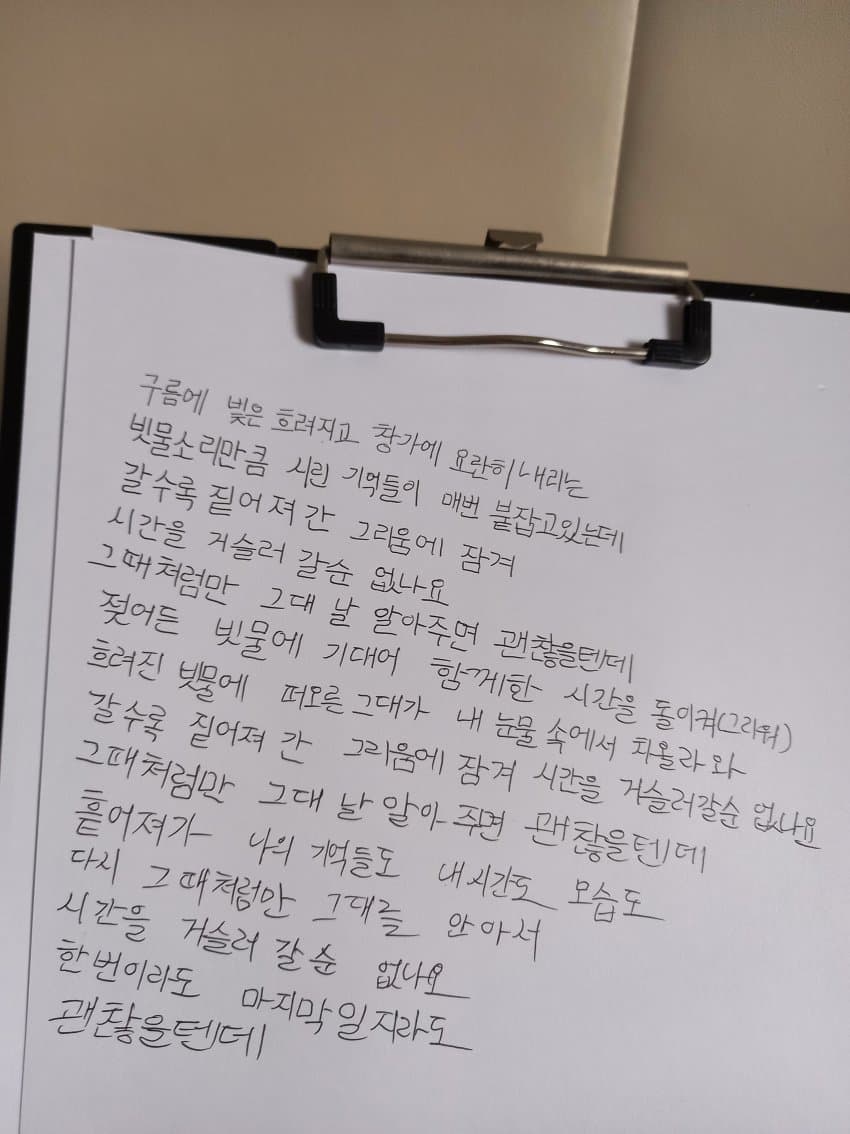 구름에 빛은 흐려지고 창가에 요란히 내리는
빗물소리만큼 시린 기억들이 매번 붙잡고있는데
갈수록 짙어져 간 그리움에 잠겨
시간을 거슬러 갈순 없나요
그때처럼만 그대 날 알아주면 괜찮을텐데
젖어든 빗물에 기대어 함께한 시간을 돌이켜(그리워)
흐려진 빗물에 떠오른 그대가 내 눈물 속에서 차올라와
갈수록 짙어져 간 그리움에 잠겨 시간을 거슬러갈순 없나요
그때처럼만 그대 날 알아 주면 괜찮을텐데
흩어져가 나의 기억들도 내시간도 모습도
다시 그때처럼만 그대를 안아서
시간을 거슬러 갈순 없나요
한번이라도 마지막일지라도
괜찮을텐데